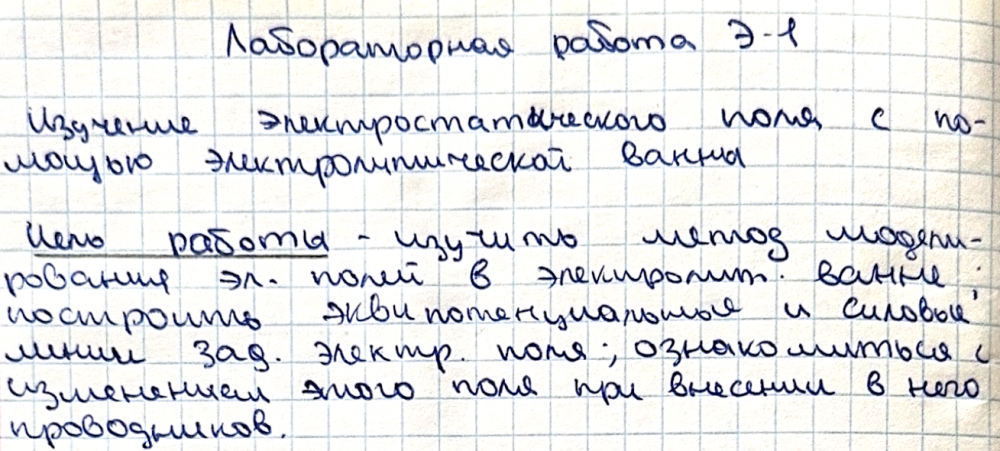 Лабораторная работа Э-1
Изучение электростатического поля с по-
мощью электролитической ванны
Цель работы - изучить метод модели-
рования эл. полей в электролит. ванне;
построить эквипотенциальные и силовые
линии зад. электр. поля; ознакомиться с
изменением этого поля при внесении в него
проводников.